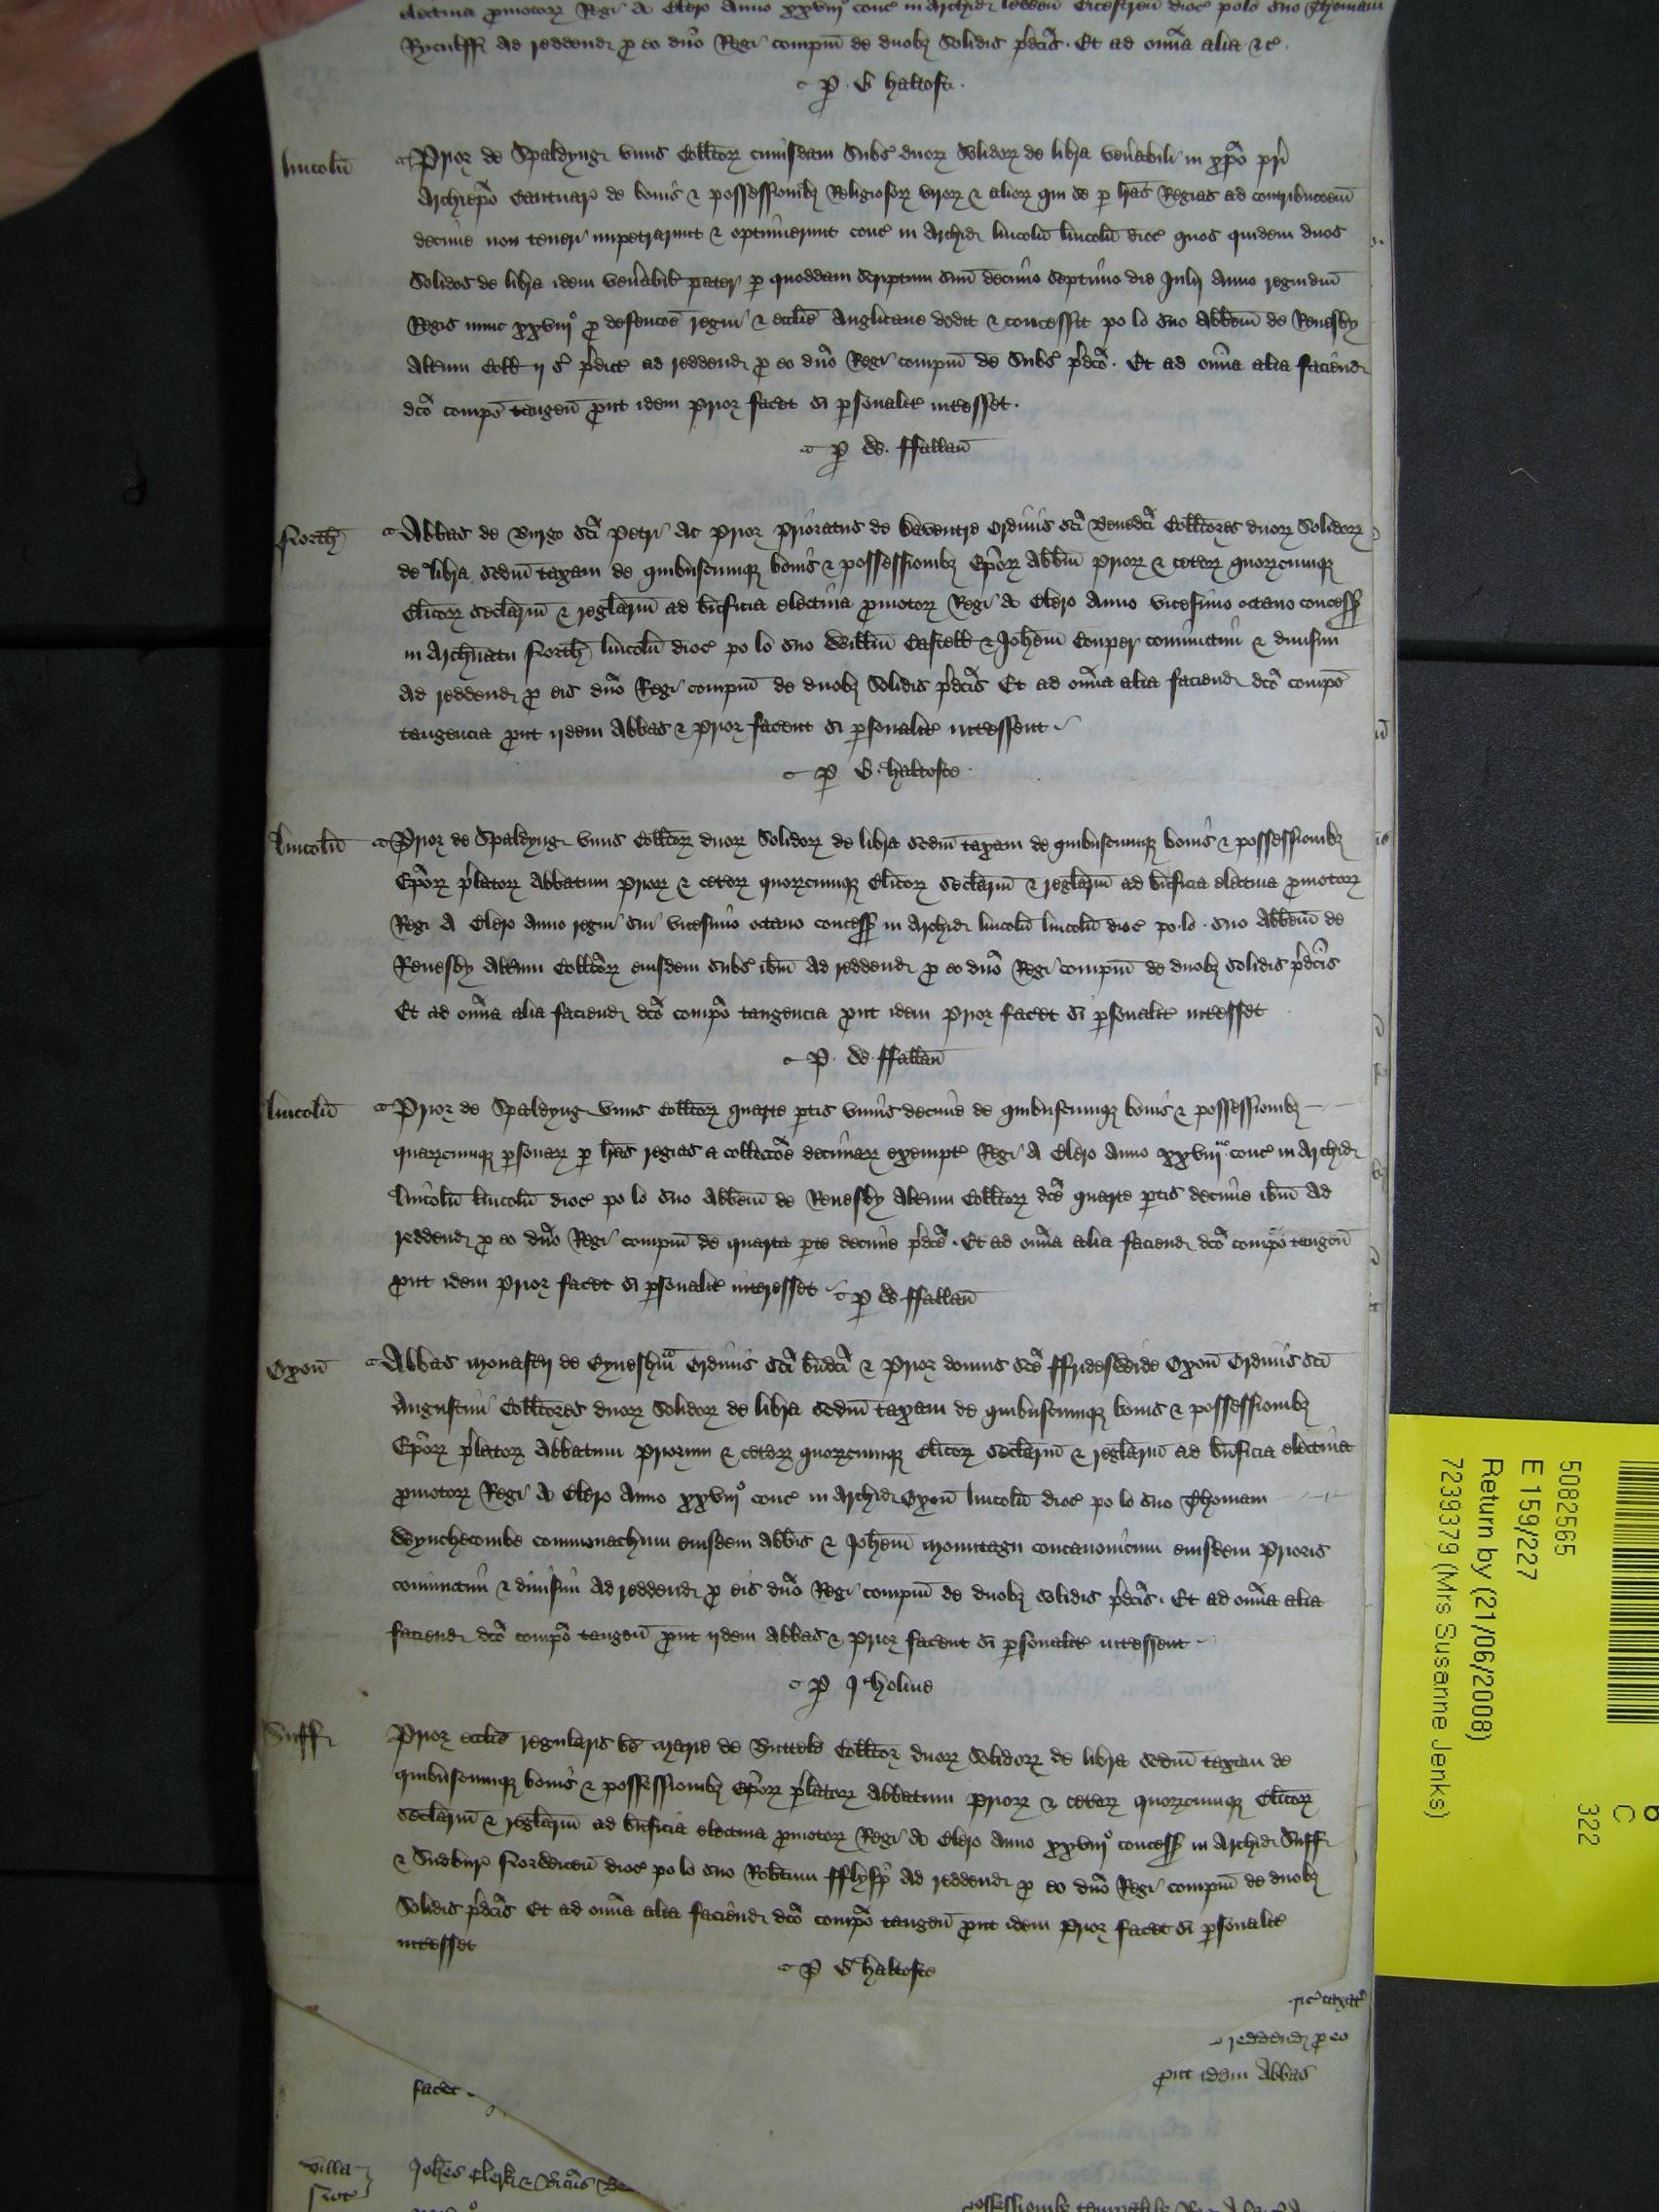 electiva ꝓmotoꝝ Regi A Clero Anno xxviij° conc̃ in Archid lewen̄ Cicestren̄ dioc̃ polo suo Thomam
Ryculff Ad reddend ꝓ eo dn̄o Regi compm̄ de duobȝ Solidis p̄dc̄is. Et ad om̄ia alia &c̃.
ꝑ G haltoft.
lincoln̄
Prior de Spaldyng vnus Coll̄toꝝ cuiusdam Subs̃ duoꝝ Solidoꝝ de libra ven̄abili in xp̄o pr̄i
Archiep̄o Cantuar̃ de bonis & possessionibȝ Religiosoꝝ viroꝝ & alioꝝ qui se ꝑ lr̄as Regias ad contribucōem̄
decime non teneri impetrarunt & optinuerunt conc̃ in Archid lincoln̄ lincoln̄ dioc̃ quos quidem duos
Solidos de libra idem ven̄abil̃ pater ꝑ quoddam scriptum suū decimo septimo die Julij Anno regni dn̄i
Regis nunc xxviij° ꝓ defencōe regni & eccl̄ie Anglicane dedit & concessit po lo suo Abb̄em de Revesby
Alt̄um Coll̃ ij s̃ p̄dict̃ ad reddend ꝓ eo dn̄o Regi compm̄ de Subs̃ p̄dc̄o. Et ad om̄ia alia faciend
dc̄o compō tangen̄ ꝓut idem Prior facet si ꝑsonalit̃ int̃esset.
ꝑ W. ffallan̄
North̃
Abbas de Burgo sc̄i Petri ac Prior Prioratus de Daventre Ordinis sc̄i Bened̄ci Coll̄tores duoꝝ Solidoꝝ
de libra scdm̄ taxam de quibuscumqꝫ bonis & possessionibȝ Ep̄oꝝ Abb̄m Prioꝝ & cet̃oꝝ quoꝝcumqꝫ
Cl̄icoꝝ Secl̄arium & regl̄arium ad bn̄ficia electiva ꝓmotoꝝ Regi A Clero Anno vicesimo octavo concess̃
in Arch̄natu North̃ lincoln̄ dioc̃ po lo suo Will̄m Castell̃ & Joh̄em Couper coniunctim & divisim
Ad reddend ꝓ eis dn̄o Regi compm̄ de duobȝ Solidis p̄dc̄is Et ad om̄ia alia faciend dc̄o compō
tangencia ꝓut ijdem Abbas & Prior facent si ꝑsonalit̃ int̃essent
ꝑ G. haltofte
lincoln̄
Prior de Spaldyng vnus Coll̄toꝝ duoꝝ Solidoꝝ de libra scdm̄ taxam de quibuscumqꝫ bonis & possessionibȝ
Ep̄oꝝ p̄latoꝝ Abbatum Prioꝝ & cet̃oꝝ quoꝝcumqꝫ Cl̄icoꝝ Secl̄arium & regl̄arium ad bn̄ficia electiva ꝓmotoꝝ
Regi A Clero Anno regni sui vicesimo octavo concess̃ in Archid lincoln̄ lincoln̄ dioc̃ po. lo. suo Abb̄em de
Revesby Alt̄um Coll̄toꝝ eiusdem subs̃ ib̄m Ad reddend ꝓ eo dn̄o Regi compm̄ de duobȝ solidis p̄dc̄is
Et ad om̄ia alia faciend dc̄o compō tangencia ꝓut idem Prior facet si ꝑsonalit̃ int̃esset
ꝑ. W. ffallan̄
lincoln̄
Prior de Spaldyng vnus Coll̄toꝝ quarte ꝑtis vnius decime de quibuscumqꝫ bonis & possessionibȝ
quaꝝcumqꝫ ꝑsonaꝝ ꝑ lr̄as regias a collecc̄oe decimaꝝ exempt̃ Regi A Clero Anno xxviij° conc̃ in Archid
lincoln̄ lincoln̄ dioc̃ po lo suo Abb̄em de Revesby Alt̄um Coll̄toꝝ dc̄e quarte ꝑtis decime ib̄m Ad
reddend ꝓ eo dn̄o Regi compm̄ de quarta ꝑte decime p̄dc̄e. Et ad om̄ia alia faciend dc̄o compō tangen̄
ꝓut idem Prior facet si ꝑsonalit̃ interesset ꝑ W ffallan̄
Oxon̄
Abbas monastĳ de Eyneshm̄ Ordinis sc̄i bn̄dc̄i & Prior domus sc̄e ffrideswide Oxon̄ Ordinis sc̄i
Augustini Coll̄tores duoꝝ Solidoꝝ de libra scdm̄ taxam de quibuscumqꝫ bonis & possessionibȝ
Ep̄oꝝ p̄latoꝝ Abbatum Priorum & cet̃oꝝ quoꝝcumqꝫ Cl̄icoꝝ Secl̄arium & regl̄arium ad bn̄ficia electiva
ꝓmotoꝝ Regi A Clero Anno xxviij° conc̃ in Archid Oxon̄ lincoln̄ dioc̃ po lo suo Thomam
Wynchecombe commonachum eiusdem Abb̄is & Joh̄em Mountagu concanonicum eiusdem Prioris
coniunctim & divisim Ad reddend ꝓ eis dn̄o Regi compm̄ de duobȝ solidis p̄dc̄is. Et ad om̄ia alia
faciend dc̄o compō tangen̄ ꝓut ijdem Abbas & Prior facent si ꝑsonalit̃ int̃essent
ꝑ J holme
Suff
Prior eccl̄ie regularis be Marie de Buttele Coll̄tor duoꝝ Solidoꝝ de libra scdm̄ taxam de
quibuscumqꝫ bonis & possessionibȝ Ep̄oꝝ p̄latoꝝ Abbatum Prioꝝ & cet̃oꝝ quoꝝcumqꝫ Cl̄icoꝝ
Secl̄arium & regl̄arium ad bn̄ficia electiva ꝓmotoꝝ Regi A Clero Anno xxviij° concess̃ in Archid Suff
& Sudbur̃ Norwicen̄ dioc̃ po lo suo Rob̄tum Ad reddend ꝓ eo dn̄o Regi compm̄ de duobȝ
Solidis p̄dc̄is Et ad om̄ia alia faciend dc̄o compō tangen̄ ꝓut idem Prior facet si ꝑsonalit̃
int̃esset
ꝑ G haltofte
sic̃ taxat̃
reddend ꝓ eo
ꝓut idem Abbas
facet.
villa
Joh̄es Clerk &
5082565
E 159/227
Return by (21/06/2008)
7239379 (Mrs Susanne Jenks)
C
322